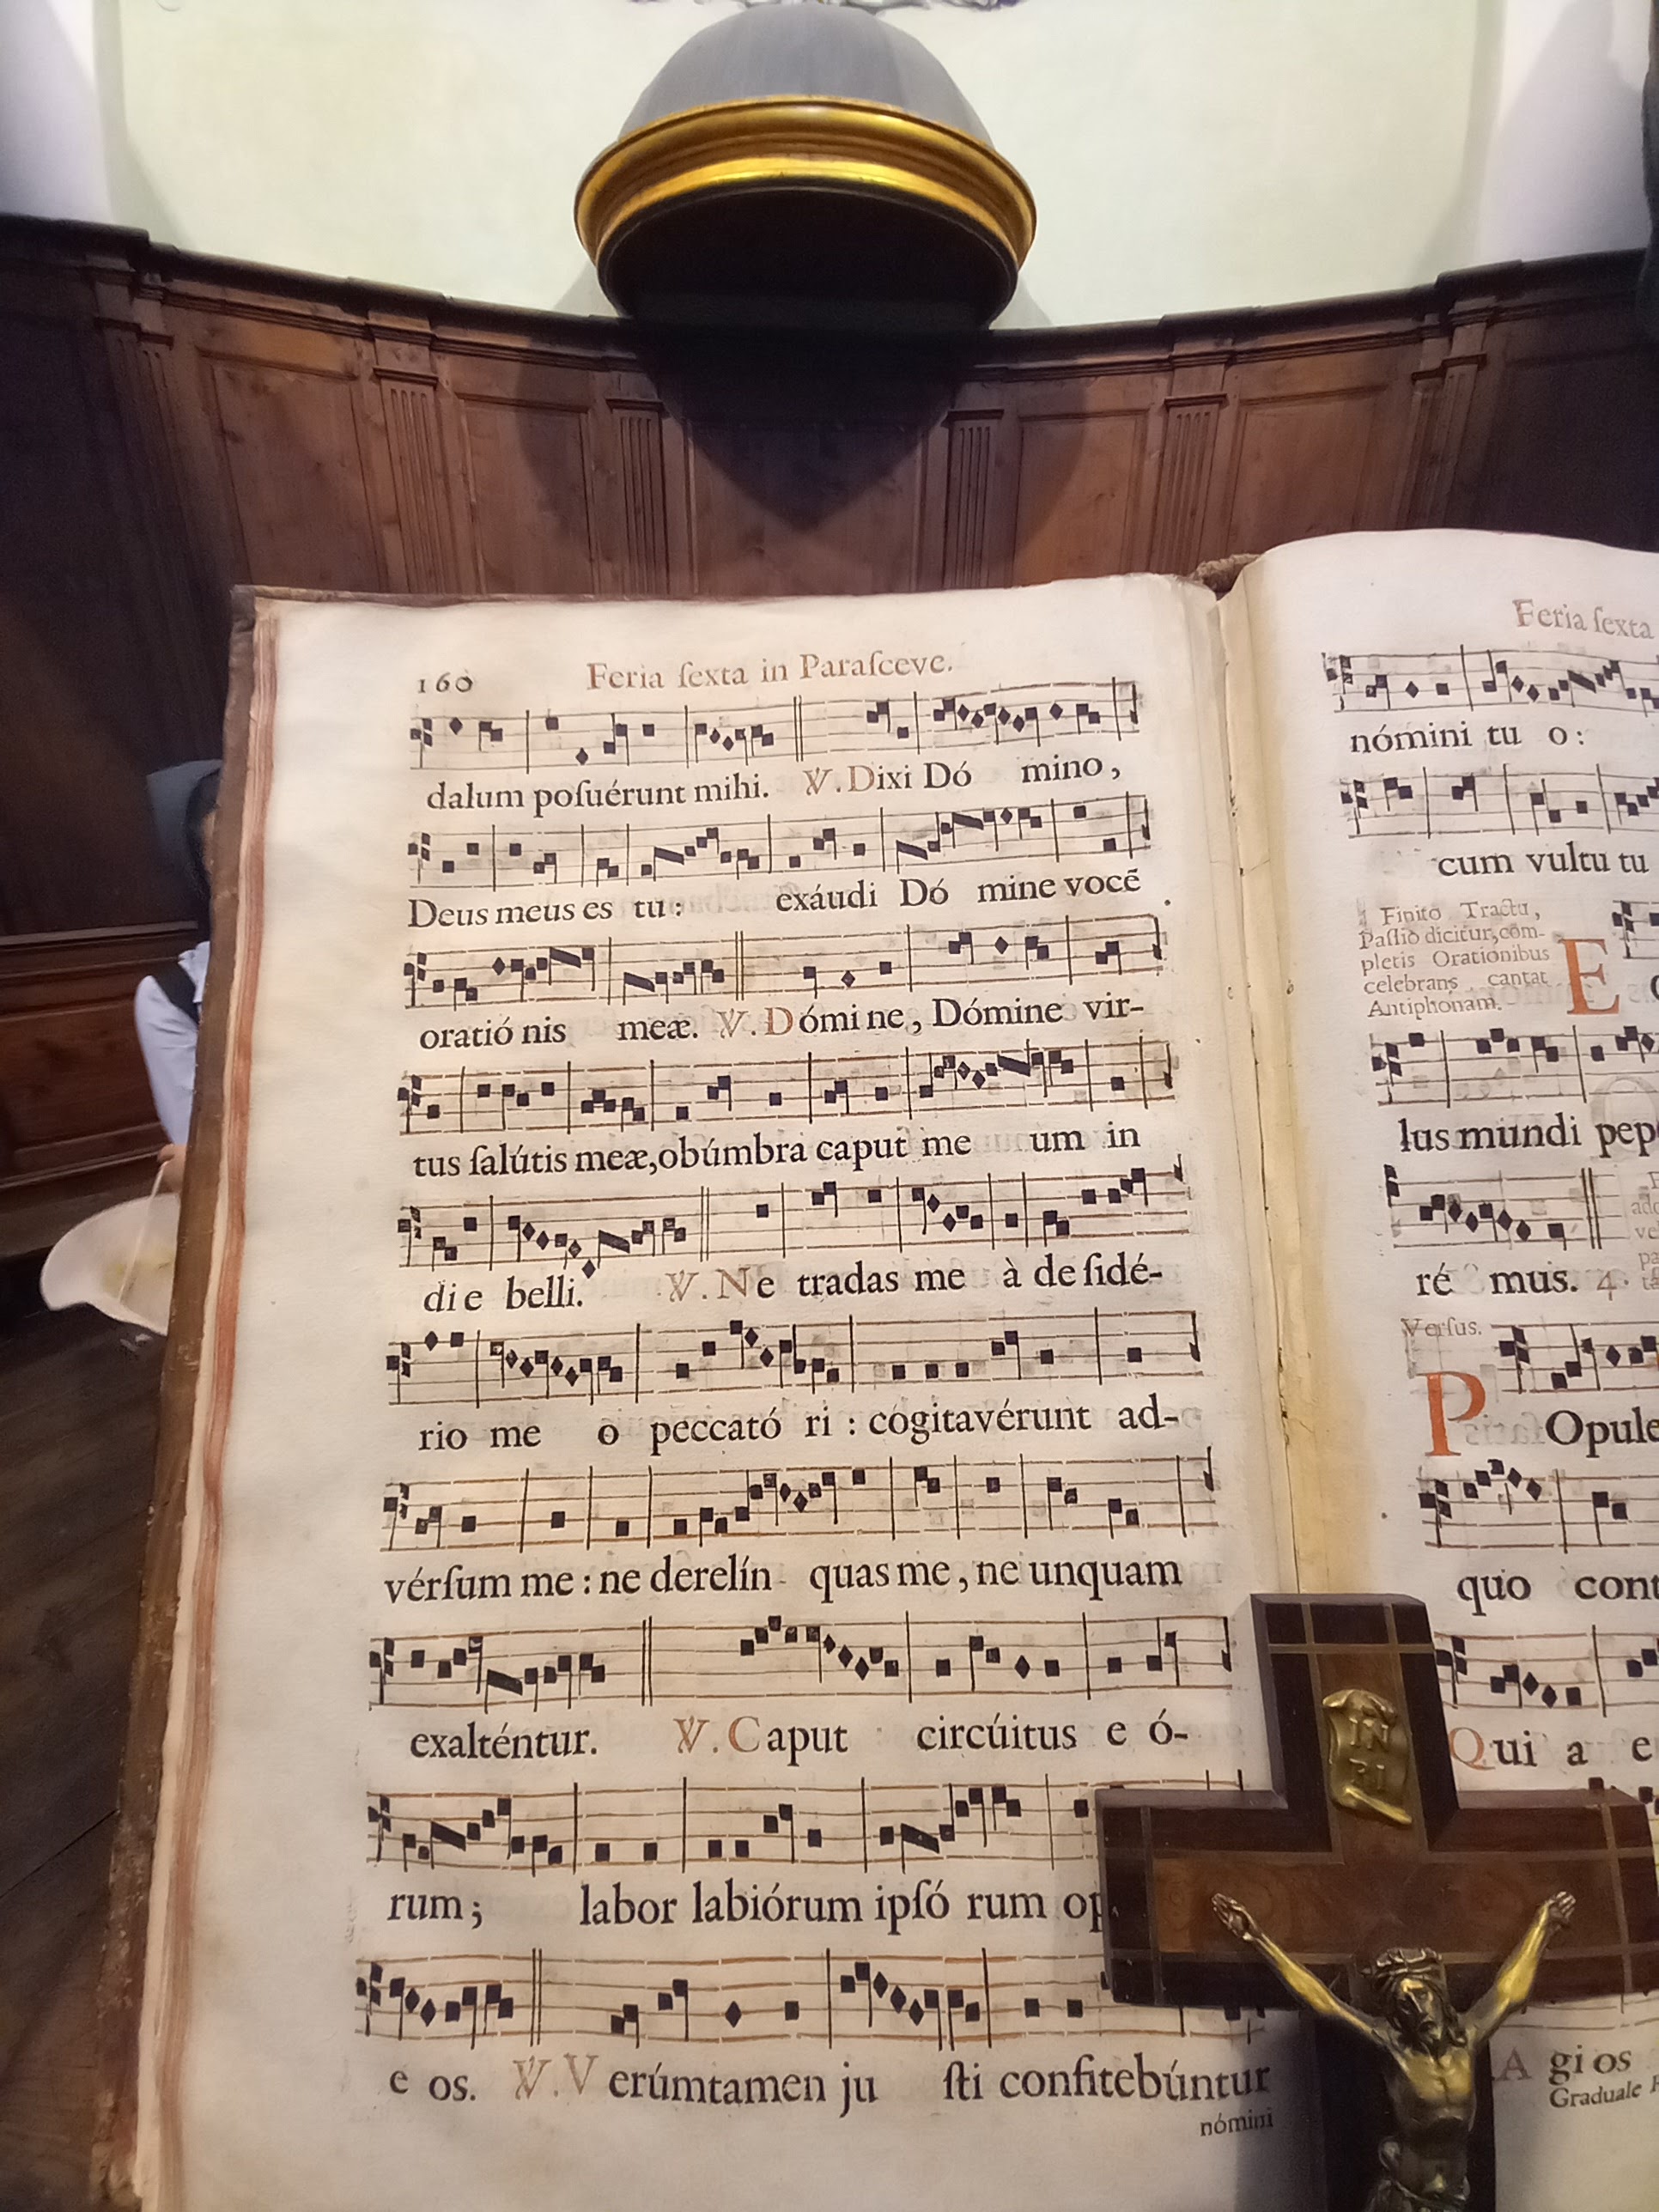 160 Feria ſexta in Paraſceve.
dalum poſuérunt mihi. ℣. Dixi Dó mino,
Deus meus es tu: exáudi Dó mine vocẽ
oratió nis meæ. ℣. Dómine, Dómine vir-
tus ſalútis meæ, obúmbra caput me um in
die belli. ℣. Ne tradas me à deſidé-
rio me o peccató ri: cogitavérunt ad-
vérſum me: ne derelín- quas me, ne unquam
exalténtur. ℣. Caput circúitus e ó-
rum; labor labiórum ipſó rum
e os. ℣. Verúmtamen ju ſti confitebúntur
nómini
Feria ſexta
nómini tu o:
cum vultu tu
Finito Tractu,
Paſſio dicitur, com-
pletis Orationibus
celebrans cantat
Antiphonam.
E
lus mundi pep
ré mus. 4.
Verſus.
POpule
quo cont
Qui a e
INRI
A gi os
Graduale